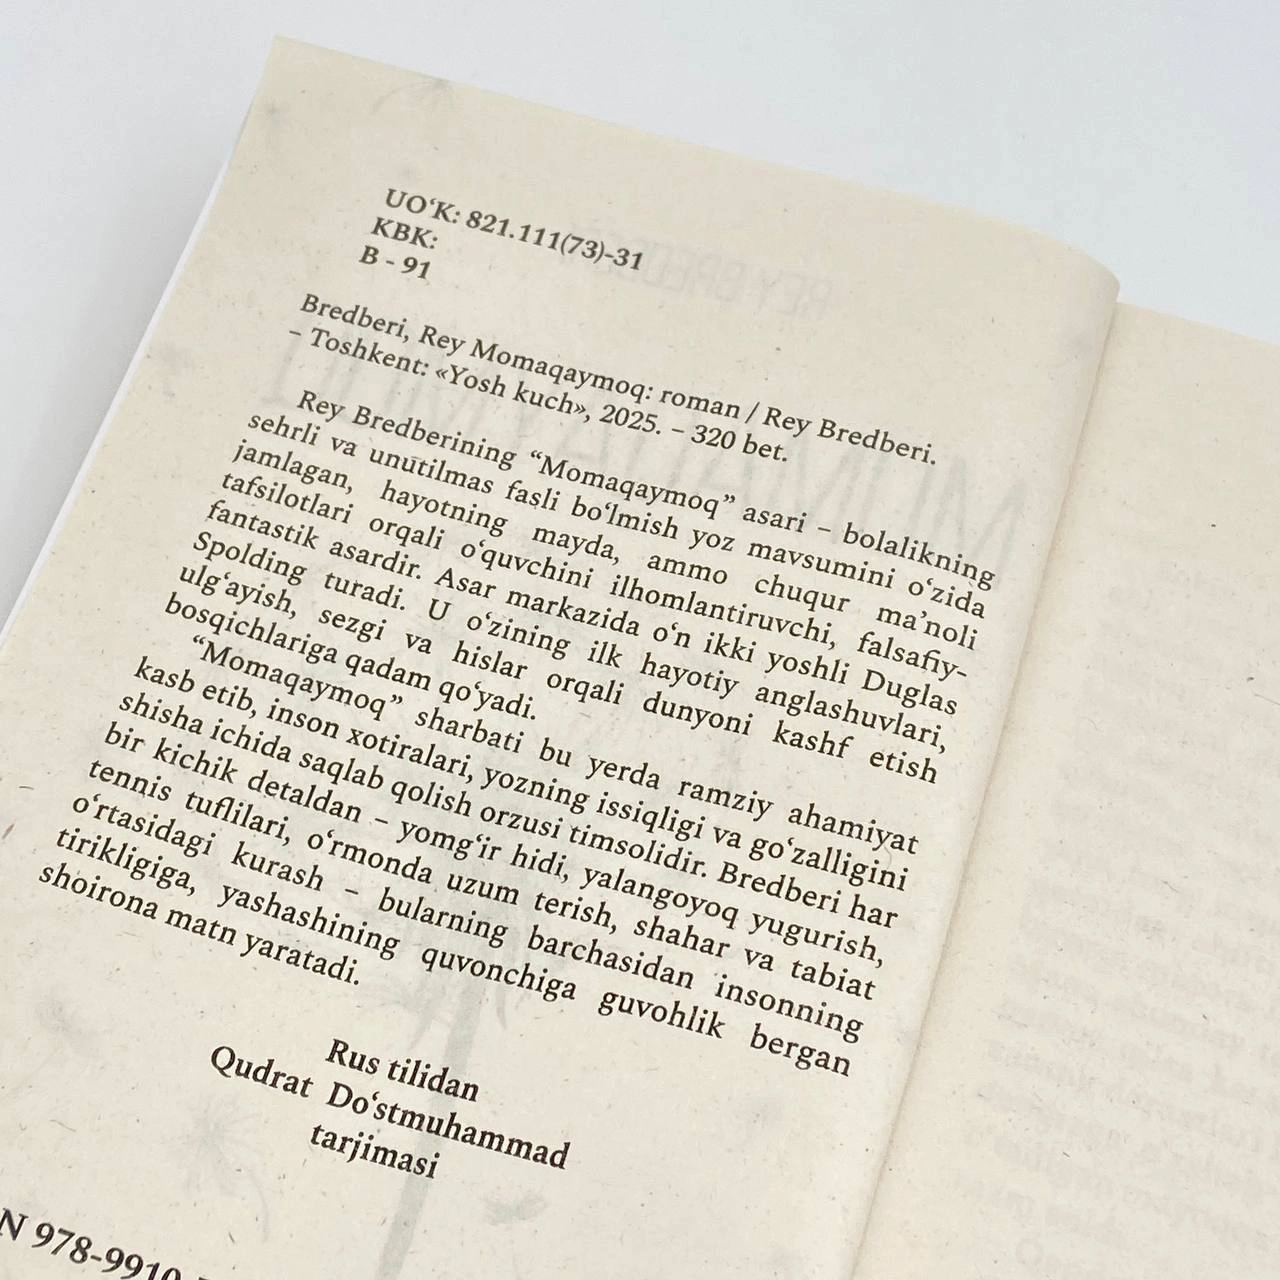 UO‘K: 821.111(73)-31
KBK:
B - 91
Bredberi, Rey Momaqaymoq: roman / Rey Bredberi.
– Toshkent: «Yosh kuch», 2025. – 320 bet.
Rey Bredberining “Momaqaymoq” asari – bolalikning
sehrli va unutilmas fasli bo‘lmish yoz mavsumini o‘zida
jamlagan, hayotning mayda, ammo chuqur ma’noli
tafsilotlari orqali o‘quvchini ilhomlantiruvchi, falsafiy-
fantastik asardir. Asar markazida o‘n ikki yoshli Duglas
Spolding turadi. U o‘zining ilk hayotiy anglashuvlari,
ulg‘ayish, sezgi va hislar orqali dunyoni kashf etish
bosqichlariga qadam qo‘yadi.
“Momaqaymoq” sharbati bu yerda ramziy ahamiyat
kasb etib, inson xotiralari, yozning issiqligi va go‘zalligini
shisha ichida saqlab qolish orzusi timsolidir. Bredberi har
bir kichik detaldan – yomg‘ir hidi, yalangoyoq yugurish,
tennis tuflilari, o‘rmonda uzum terish, shahar va tabiat
o‘rtasidagi kurash – bularning barchasidan insonning
tirikligiga, yashashining quvonchiga guvohlik bergan
shoirona matn yaratadi.
Rus tilidan
Qudrat Do‘stmuhammad
tarjimasi
N 978-9910-